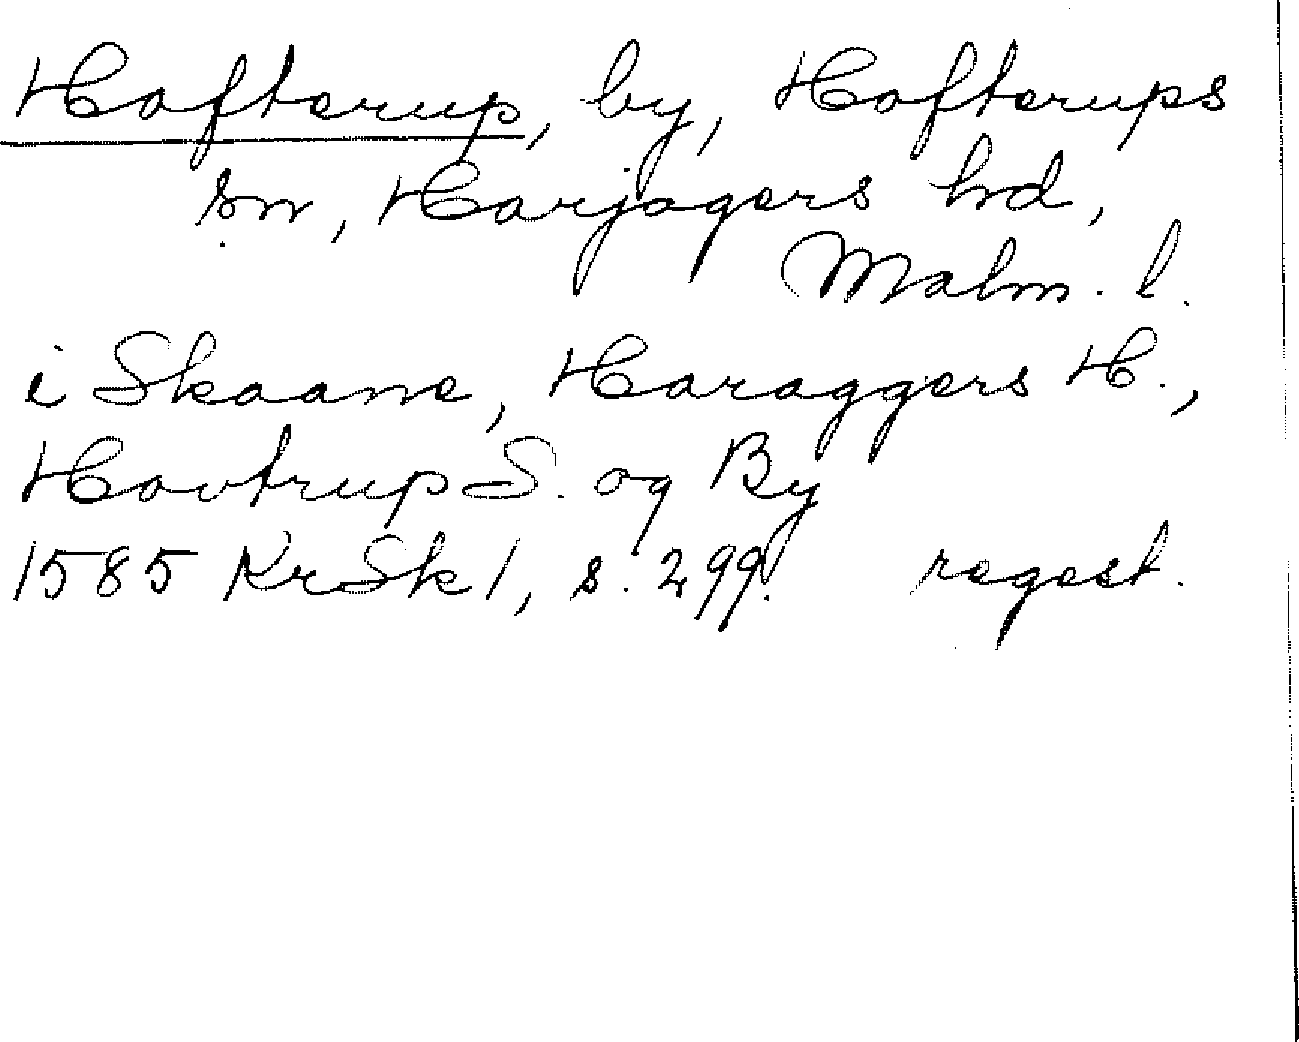 Hofterup, by, Hofterups
sn, Harjagers hd,
Malm. l.
i Skaane, Haraggers H.,
Hovtrup S. og By
1585 KrSk 1, s. 299. regest.